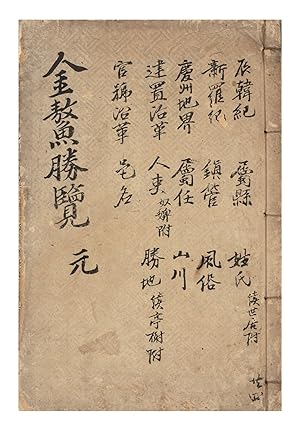 辰韓紀
新羅紀
慶州地界
建置沿革
官號沿革
屬縣
鎭管
屬任
人吏 奴婢附
邑名
姓氏
風俗
山川
勝地 亭榭附
金鰲勝覽 元
共四